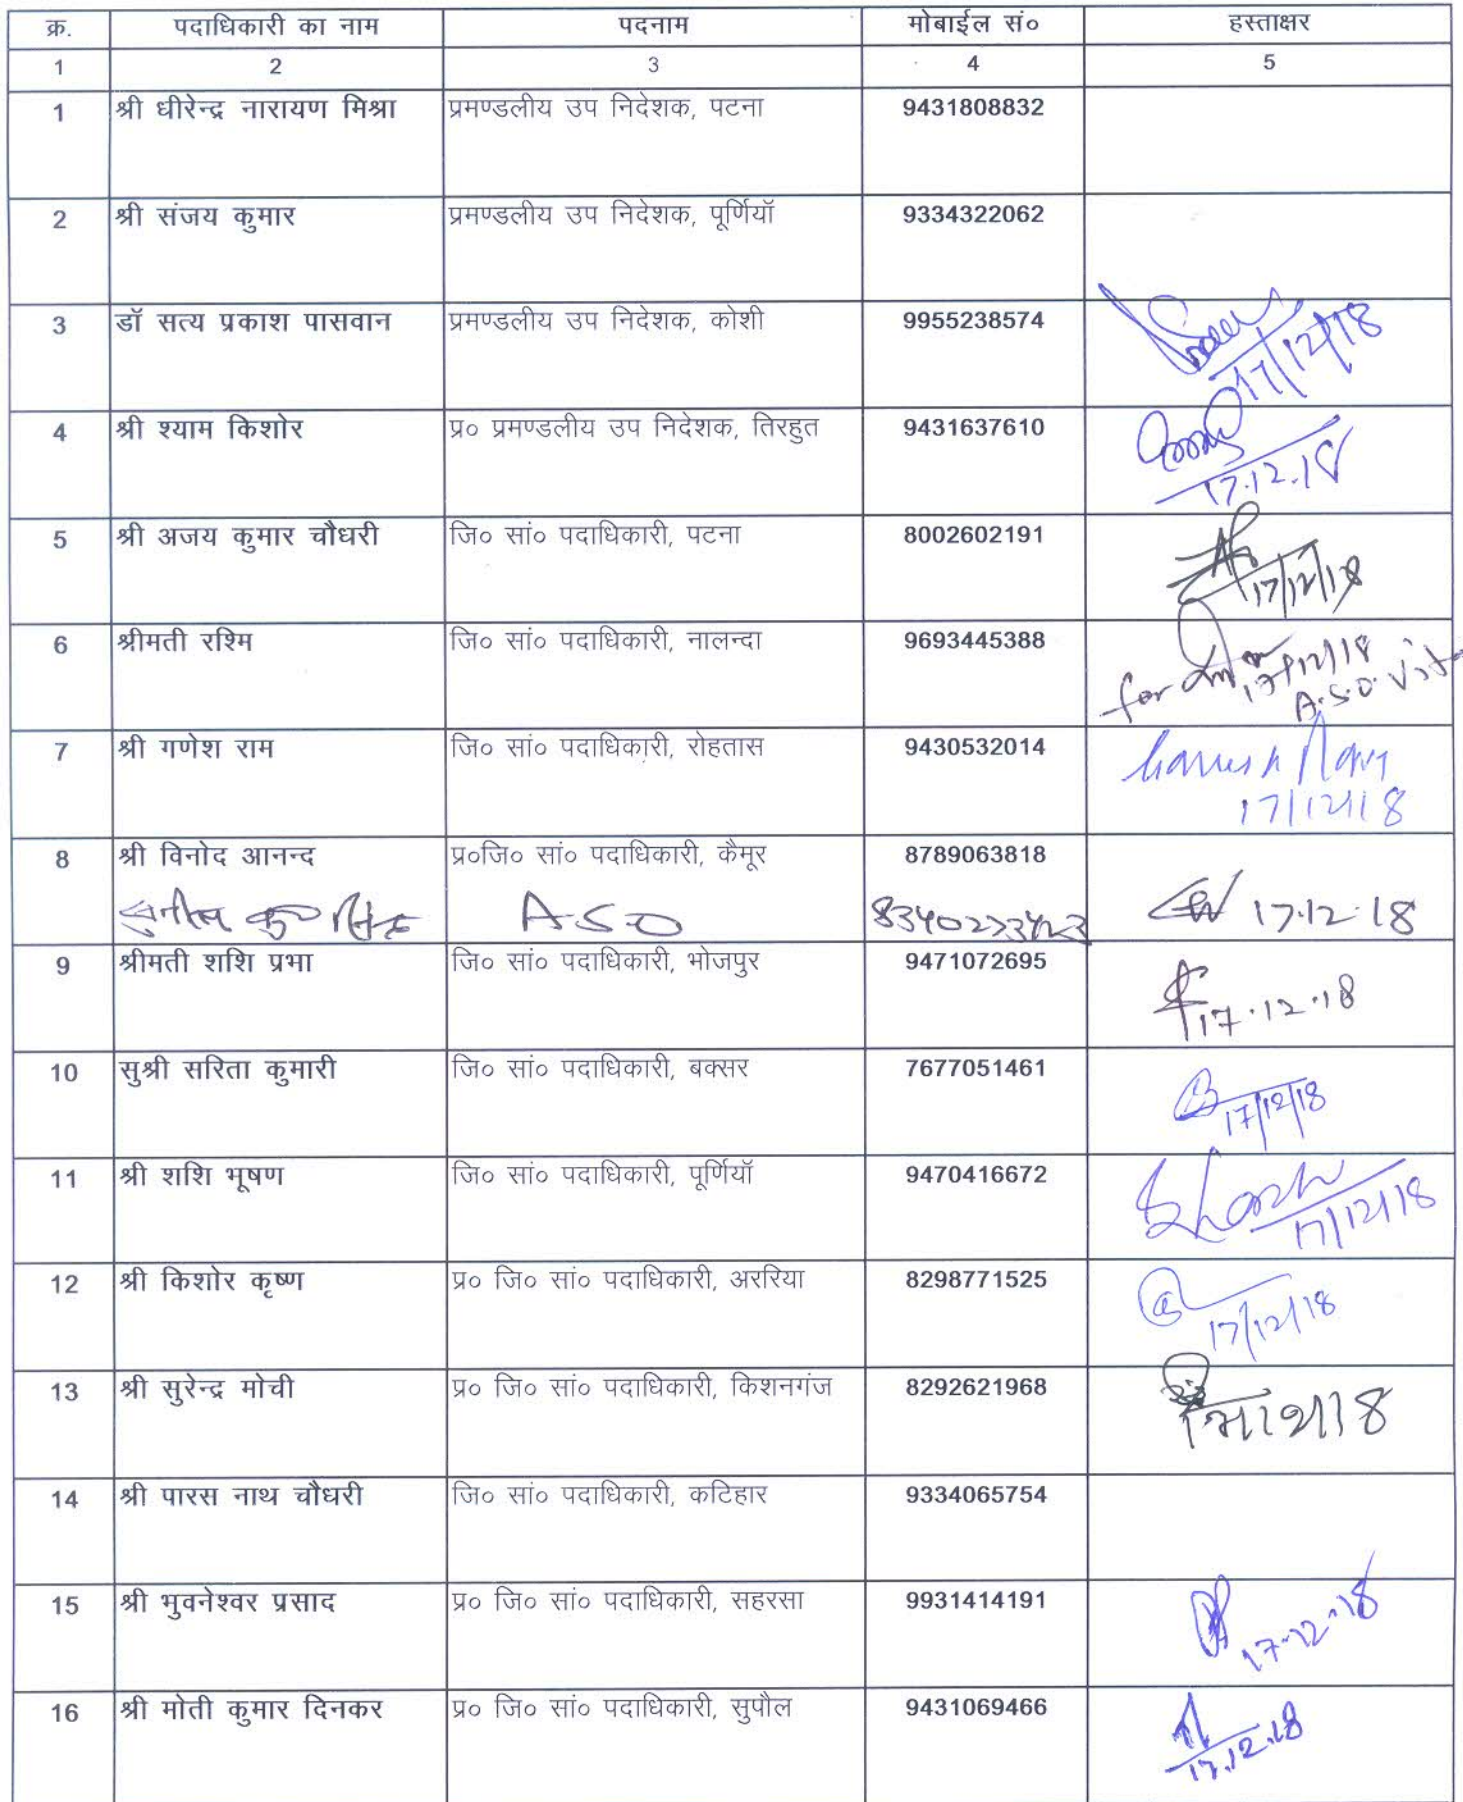 क्र. पदाधिकारी का नाम पदनाम मोबाईल सं० हस्ताक्षर
1 2 3 4 5
1 श्री धीरेन्द्र नारायण मिश्रा प्रमण्डलीय उप निदेशक, पटना 9431808832
2 श्री संजय कुमार प्रमण्डलीय उप निदेशक, पूर्णियॉ 9334322062
3 डॉ सत्य प्रकाश पासवान प्रमण्डलीय उप निदेशक, कोशी 9955238574 17/12/18
4 श्री श्याम किशोर प्र० प्रमण्डलीय उप निदेशक, तिरहुत 9431637610 17.12.18
5 श्री अजय कुमार चौधरी जि० सां० पदाधिकारी, पटना 8002602191 17/12/18
6 श्रीमती रश्मि जि० सां० पदाधिकारी, नालन्दा 9693445388 for 17/12/18
A.S.O.
7 श्री गणेश राम जि० सां० पदाधिकारी, रोहतास 9430532014 Ganesh Ram
17/12/18
8 श्री विनोद आनन्द प्र०जि० सां० पदाधिकारी, कैमूर 8789063818
A.S.O 17.12.18
9 श्रीमती शशि प्रभा जि० सां० पदाधिकारी, भोजपुर 9471072695 17.12.18
10 सुश्री सरिता कुमारी जि० सां० पदाधिकारी, बक्सर 7677051461 17/12/18
11 श्री शशि भूषण जि० सां० पदाधिकारी, पूर्णियॉ 9470416672 17/12/18
12 श्री किशोर कृष्ण प्र० जि० सां० पदाधिकारी, अररिया 8298771525 17/12/18
13 श्री सुरेन्द्र मोची प्र० जि० सां० पदाधिकारी, किशनगंज 8292621968
14 श्री पारस नाथ चौधरी जि० सां० पदाधिकारी, कटिहार 9334065754
15 श्री भुवनेश्वर प्रसाद प्र० जि० सां० पदाधिकारी, सहरसा 9931414191 17-12-18
16 श्री मोती कुमार दिनकर प्र० जि० सां० पदाधिकारी, सुपौल 9431069466 17.12.18